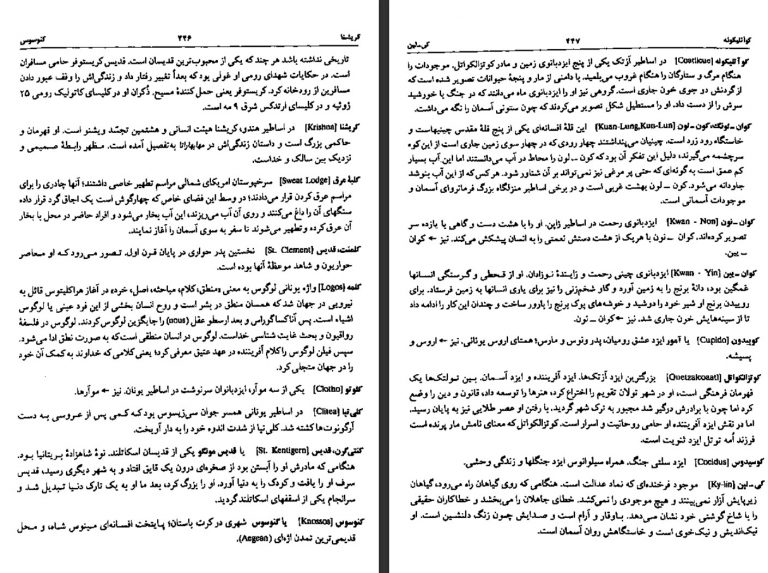 گریشنا
۴۴۶
کنوسوس
تاریخی نداشته باشد هر چند که یکی از محبوب‌ترین قدیسان است. قدیس کریستوفر حامی مسافران
است. در حکایات شهدای رومی او غولی بود که بعداً تغییر رفتار داد و زندگی‌اش را وقف عبور دادن
مسافرین از رودخانه کرد. کریستوفر یعنی حمل کنندهٔ مسیح. ذکران او در کلیسای کاتولیک رومی ۲۵
ژوئیه و در کلیسای ارتدکس شرق ۹ مه است.
کریشنا [Krishna] در اساطیر هندو، کریشنا هیئت انسانی و هشتمین تجسّد ویشنو است. او قهرمان و
حاکمی بزرگ است و داستان زندگی‌اش در مهابهاراتا به‌تفصیل آمده است. مظهر رابطهٔ صمیمی و
نزدیک بین سالک و خداست.
کلبهٔ عرق [Sweat Lodge] سرخپوستان امریکای شمالی مراسم تطهیر خاصی داشتند؛ آنها چادری را برای
مراسم عرق کردن قرار می‌دادند؛ در وسط این فضای خاص که چهارگوش است یک اجاق گرد قرار داده
سنگهای آن را داغ می‌کنند و روی آن آب می‌ریزند، این آب بخار می‌شود و افراد حاضر در محل با بخار
آن عرق کرده و تطهیر می‌شوند تا سفر به سوی آسمان را آغاز نمایند.
کلمنت، قدیس [St. Clement] نخستین پدر حواری در پایان قرن اول. تصور می‌رود که او معاصر
حواریون و شاهد موعظهٔ آنها بوده است.
کلمه [Logos] واژه یونانی لوگوس به معنی «منطق، کلام، مباحثه، اصل، خرد» در آغاز هراکلیتوس قائل به
نیرویی در جهان شد که همسان منطق در بشر است و روح انسان بخشی از این فرد عینی یا لوگوس
اشیاء است. پس آناکساگوراس و بعد ارسطو عقل (nous) را جایگزین لوگوس کردند. لوگوس در فلسفهٔ
رواقیون و بحث غایت شناسی خداست. لوگوس در انسان منطقی است که به صورت نطق ادا می‌شود.
سپس فیلن لوگوس را کلام آفریننده در عهد عتیق معرفی کرد؛ یعنی کلامی که خداوند به کمک آن خود
را در جهان متجلی کرد.
کلوتو [Clotho] یکی از سه موآر، ایزدبانوان سرنوشت در اساطیر یونان. نیز ← موآرها.
کلی‌تیا [Clitea] در اساطیر یونانی همسر جوان سی‌زیسوس بود که کمی پس از عروسی به دست
آرگونوت‌ها کشته شد. کلی‌تیا از شدت اندوه خود را به دار آویخت.
کنتی‌گرن، قدیس [St. Kentigern] یا قدیس مونگو یکی از قدیسان اسکاتلند. نوهٔ شاهزادهٔ بریتانیا بود.
هنگامی که مادرش او را آبستن بود از صخره‌ای درون یک قایق افتاد و به شهر دیگری رسید، قدیس
سرف او را یافت و کودک را به دنیا آورد. او را بزرگ کرد، بعد ما او به یک تارک دنیا تبدیل شد و
سرانجام یکی از اسقفهای اسکاتلند گردید.
کنوسوس [Knossos] یا گنوسوس شهری در کرت باستان؛ پایتخت افسانه‌ای مینوس شاه، و محل
قدیمی‌ترین تمدن اژه‌ای (Aegean).
کوآتلیکوئه
۴۴۷
کی-لین
کوآتلیکوئه [Coatlicue] در اساطیر آزتک یکی از پنج ایزدبانوی زمین و مادر کوتزالکوآتل. موجودات را
هنگام مرگ و ستارگان را هنگام غروب می‌بلعید. با دامنی از مار و پنجهٔ حیوانات تصویر شده است که
از گردنش دو جوی خون جاری است. گروهی نیز او را ایزدبانوی ماه می‌دانند که در جنگ با خورشید
سرش را از دست داد. او را مستطیل شکل تصویر می‌کردند که چون ستونی آسمان را نگه می‌داشت.
کوان-لونگ، کون-لون [Kuan-Lung, Kun-Lun] این قلهٔ افسانه‌ای یکی از پنج قلهٔ مقدس چینیهاست و
خاستگاه رود زرد است. چینیان می‌پنداشتند چهار رودی که در چهار سوی زمین جاری است از این کوه
سرچشمه می‌گیرند، دلیل این تفکر آن بود که کون-لون را محاط در آب می‌دانستند اما این آب بسیار
کم عمق است به گونه‌ای که حتی پر مرغی نیز نمی‌تواند بر آن شناور شود. هر کس از این آب بنوشد
جاودانه می‌شود. کون-لون بهشت غربی است و در برخی اساطیر منزلگاه بزرگ فرمانروای آسمان و
موجودات آسمانی است.
کوان-نون [Kwan - Non] ایزدبانوی رحمت در اساطیر ژاپن. او را با هشت دست و گاهی با یازده سر
تصویر کرده‌اند. کوان-نون با هریک از هشت دستش نعمتی را به انسان پیشکش می‌کند. نیز ← کوان
- یین.
کوان-یین [Kwan - Yin] ایزدبانوی چینی رحمت و زایندهٔ نوزادان. او از قحطی و گرسنگی انسانها
غمگین بود، دانهٔ برنج را به زمین آورد و گاو شخم‌زنی را نیز برای یاری انسانها به زمین فرستاد. برای
روییدن برنج او شیر خود را دوشید و خوشه‌های پوک برنج را بارور ساخت و چندان این کار را ادامه داد
تا از سینه‌هایش خون جاری شد. نیز ← کوان-نون.
کوپیدون [Cupido] یا آمور ایزد عشق رومیان، پدر ونوس و مارس؛ همتای اروس یونانی. نیز ← اروس و
پسیشه.
کوتزالکوآتل [Quetzalcoatl] بزرگترین ایزد آزتک‌ها. ایزد آفریننده و ایزد آسمان. بین تولتک‌ها یک
قهرمان فرهنگی است، او در شهر تولان تقویم را اختراع کرد، هنرها را توسعه داد، قانون و دین را وضع
کرد اما چون با برادرش درگیر شد مجبور به ترک شهر گردید. با رفتن او عصر طلایی نیز به پایان رسید.
اما در نقش ایزد آفریننده او حامی روحانیت و اسرار است. کوتزالکوآتل که معنای نامش مار پرنده است
فرزند اُمه توتل ایزد ثنویت است.
کوسیدوس [Cocidus] ایزد سلتی جنگ. همراه سیلوانوس ایزد جنگلها و زندگی وحشی.
کی-لین [Ky-lin] موجود فرخنده‌ای که نماد عدالت است. هنگامی که روی گیاهان راه می‌رود، گیاهان
زیرپایش آزار نمی‌بینند و هیچ موجودی را نمی‌کشد. خطای جاهلان را می‌بخشد و خطاکاران حقیقی
را با شاخ گوشتی خود نشان می‌دهد. باوقار و آرام است و صدایش چون زنگ دلنشین است. او
نیک‌اندیش و نیک‌خوی است و خاستگاهش روان آسمان است.